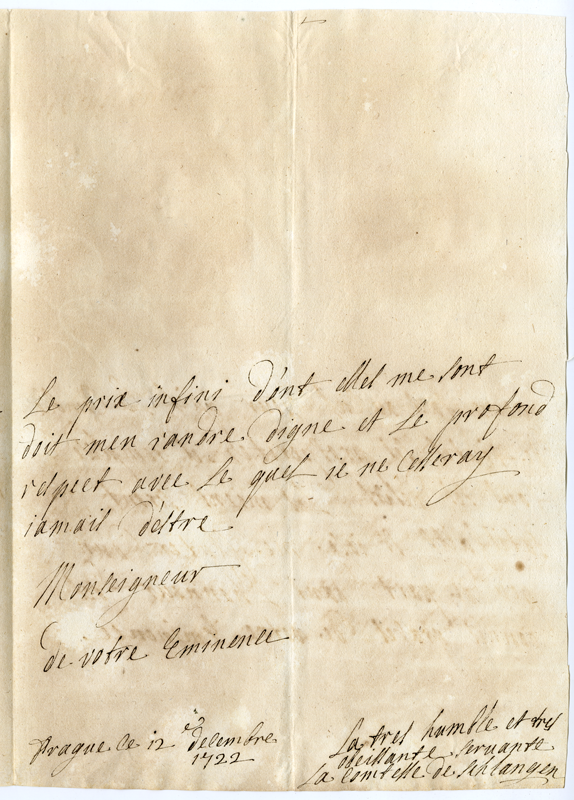 Le prix infini d'ont elles me sont
doit men randre digne et le profond
respect avec le quel ie ne cesseray
iamais d'estre
Monseigneur
de votre Eminence
Prague ce 12 decembre
1722
La tres humble et tres
obeissante servante
La comtesse de Schlangen